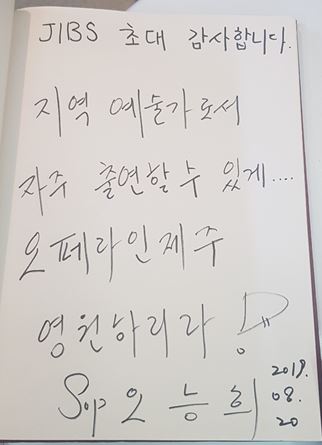 JIBS 초대 감사합니다.
지역 예술가로서
자주 출연할 수 있게....
오페라인제주
영원하리라
Sop 오능희
2019.
08.
20